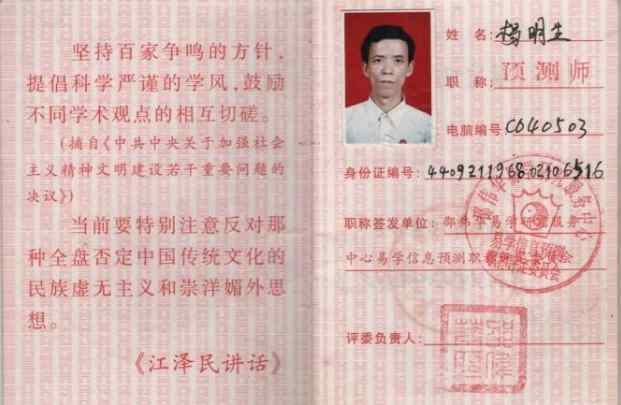 坚持百家争鸣的方针，
提倡科学严谨的学风，鼓励
不同学术观点的相互切磋。
(摘自《中共中央关于加强社会
主义精神文明建设若干重要问题的
决议》)
当前要特别注意反对那
种全盘否定中国传统文化的
民族虚无主义和崇洋媚外思
想。
《江泽民讲话》
姓 名：杨明生
职 称：预测师
电脑编号 C040503
身份证编号：440921196802106516
职称签发单位：邵伟华易学研究服务
中心易学信息预测职称评定委员会
评委负责人：